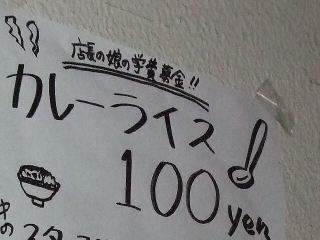 店長の娘の学費募金!!
カレーライス
100 yen